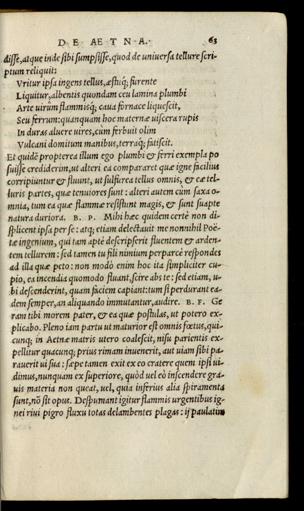 DE AETNA. 63
disse, atque inde sibi sumpsisse, quod de uniuersa tellure scri
ptum reliquit:
Vritur ipsa ingens tellus, æstuq; furente
Liquitur, albentis quondam ceu lamina plumbi
Arte uirûm flammisq; caua fornace liquescit,
Seu ferrum: quanquam hoc maternæ uiscera rupis
In duras aluere uires, cùm ferbuit olim
Vulcani domitum manibus, terraq; fatiscit.
Et quidē propterea illum ego plumbi & ferri exempla po
suisse crediderim, ut alteri ea compararet quæ igne facilius
corripiuntur & fluunt, ut sulfurea tellus omnis, & cæ tel-
luris partes, quæ tenuiores sunt: alteri autem cùm saxa o-
mnia, tum ea quæ flammæ resistunt magis, & sunt suapte
natura duriora. B. P. Mihi hæc quidem certè non di-
splicent ipsa per se: atq; etiam delectauit me nonnihil Poë-
tæ ingenium, qui tam aptè descripserit fluentem & arden-
tem tellurem: sed tamen tu fili nimium perparcè respondes
ad illa quæ peto: non modò enim hoc ita simpliciter cu-
pio, ea incendia quomodo fluant, scire abs te: sed etiam, u-
bi descenderint, quam faciem capiant: tum si perdurant ea-
dem semper, an aliquando immutantur, audire. B. F. Ge
ram tibi morem pater, & ea quæ postulas, ut potero ex-
plicabo. Pleno iam partu ut maturior est omnis fœtus, qui-
cunq; in Aetnæ matris utero coalescit, nisu parientis ex-
pellitur quacunq; prius rimam inuenerit, aut uiam sibi pa-
rauerit ui sua: sæpe tamen exit ex eo cratere quem ipsi ui-
dimus, nunquam ex superiore, quòd uel eò inscendere gra-
uis materia non queat, uel, quia inferius alia spiramenta
sunt, nō sit opus. Despumant igitur flammis urgentibus ig-
nei riui pigro fluxu totas delambentes plagas: ij paulatim